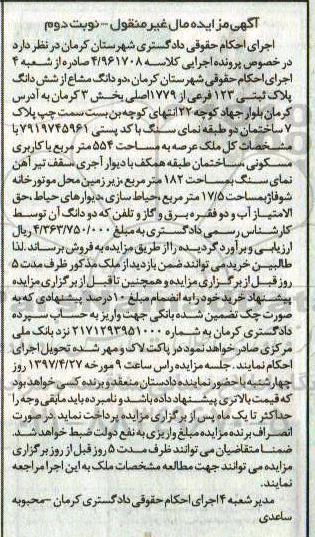 آگهی مزایده مال غیر منقول - نوبت دوم
اجرای احکام حقوقی دادگستری شهرستان کرمان در نظر دارد
در خصوص پرونده اجرایی کلاسه ۴/۹۶۱۷۰۸ صادره از شعبه ۴
اجرای احکام حقوقی شهرستان کرمان ،دو دانگ مشاع از شش دانگ
پلاک ثبتی ۱۲۳ فرعی از ۱۷۷۹اصلی بخش ۳ کرمان به آدرس
کرمان بلوار جهاد کوچه ۲۲انتهای کوچه بن بست سمت چپ پلاک
۷ ساختمان دو طبقه نمای سنگ با کد پستی ۷۹۱۹۷۴۵۹۶۱با
مشخصات کل ملک عرصه به مساحت ۵۵۴ متر مربع با کاربری
مسکونی ،ساختمان طبقه همکف با دیوار آجری سقف تیر آهن
نمای سنگ بمساحت ۱۸۲ متر مربع ،زیرزمین محل موتورخانه
شوفاژبمساحت ۱۷/۵ متر مربع ،حیاط سازی ،دیوارهای حیاط ،حق
الامتیاز آب و دو فقره برق و گاز و تلفن که دو دانگ آن توسط
کارشناس رسمی دادگستری به مبلغ ۴/۳۶۳/۷۵۰/۰۰۰ ریال
ارزیابی و برآورد گردیده را از طریق مزایده به فروش برساند .لذا
طالبین خرید می توانند ضمن بازدید از ملک مذکور ظرف مدت ۵
روز قبل از برگزاری مزایده و همچنین تا قبل از برگزاری مزایده
پیشنهاد خرید خود را به انضمام مبلغ ۱۰درصد پیشنهادی که به
صورت چک تضمین شده بانکی جهت واریز به حساب سپرده
دادگستری کرمان به شماره ۲۱۷۱۲۹۳۹۵۱۰۰۰ نزد بانک ملی
مرکزی صادر خواهد نمود در پاکت لاک و مهر شده تحویل اجرای
احکام نمایند. جلسه مزایده راس ساعت ۹ مورخه ۱۳۹۷/۴/۲۷ روز
چهارشنبه با حضور نماینده دادستان منعقد و برنده کسی خواهد بود
که قیمت بالاتری پیشنهاد داده باشد و نامبرده باید مابقی وجه را
حداکثر تا یک ماه پس از برگزاری مزایده پرداخت نماید در صورت
انصراف برنده مزایده مبلغ واریزی به نفع دولت ضبط خواهد شد.
ضمنا متقاضیان می توانند ظرف مدت ۵ روز قبل از روز برگزاری
مزایده می توانند جهت مطالعه مشخصات ملک به این اجرا مراجعه
نمایند.
مدیر شعبه ۴ اجرای احکام حقوقی دادگستری کرمان - محبوبه
ساعدی